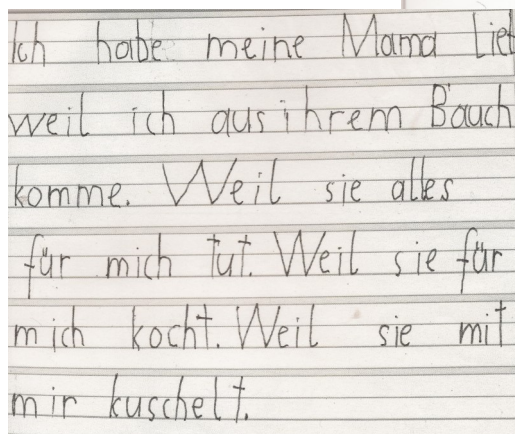 Ich habe meine Mama Lieb
weil ich aus ihrem Bauch
komme. Weil sie alles
für mich tut. Weil sie für
mich kocht. Weil sie mit
mir kuschelt.